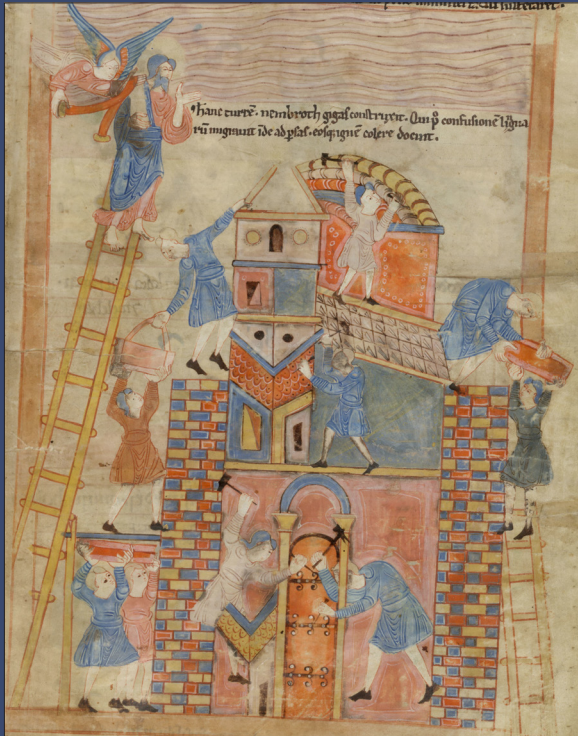 hanc turrē. nembroth gigas construxit. Qui p̊ confusionē līgua
rū migrauit īde ad ꝑsas. eosq; ignē colere docuit.